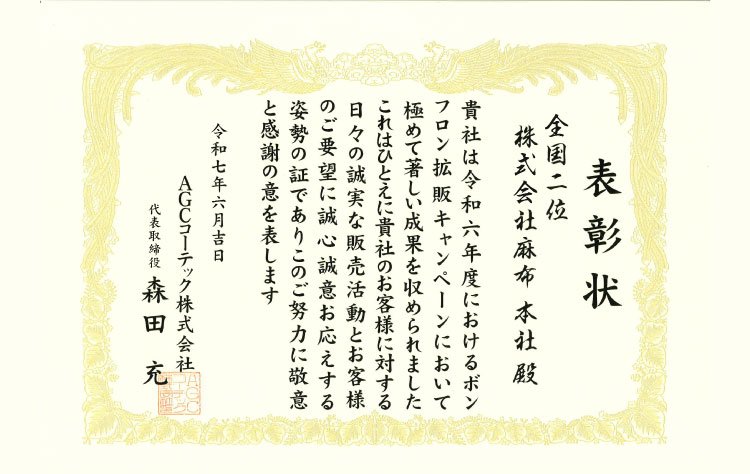 表彰状
全国二位
株式会社麻布 本社 殿
貴社は令和六年度におけるボン
フロン拡販キャンペーンにおいて
極めて著しい成果を収められました
これはひとえに貴社のお客様に対する
日々の誠実な販売活動とお客様
のご要望に誠心誠意お応えする
姿勢の証でありこのご努力に敬意
と感謝の意を表します
令和七年六月吉日
AGCコーテック株式会社
代表取締役 森田 充